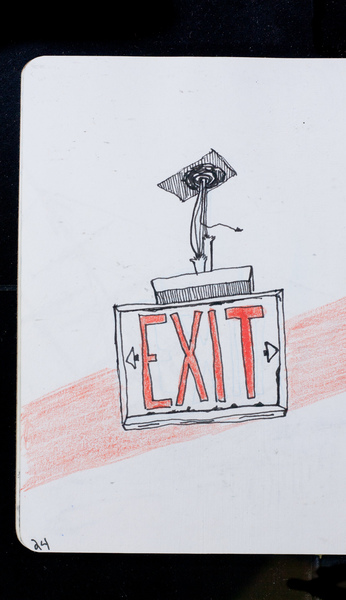 EXIT
24